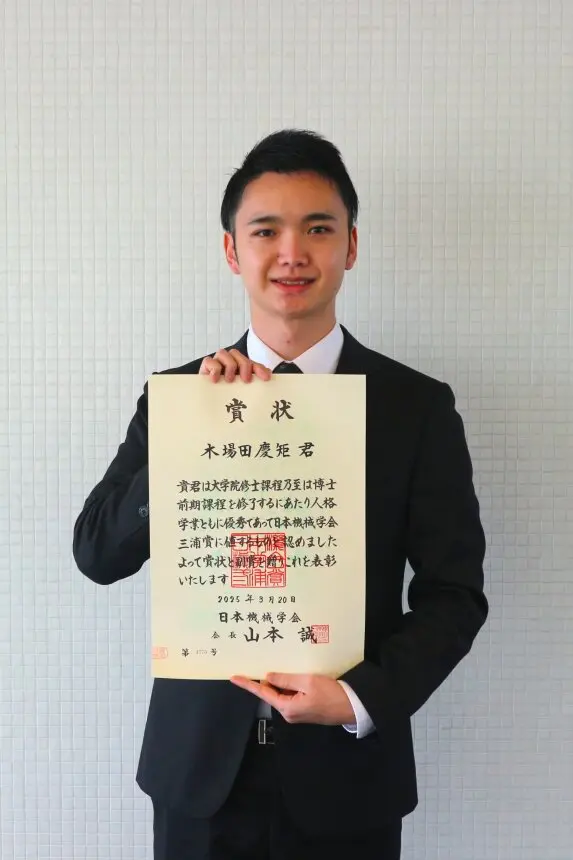 賞状
木場田慶矩君
貴君は大学院修士課程乃至は博士
前期課程を修了するにあたり人格
学業ともに優秀であって日本機械学会
三浦賞に値するものと認めました
よって賞状と副賞を贈りこれを表彰
いたします
2025年3月20日
日本機械学会
会長 山本誠
第 号